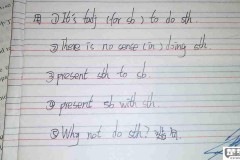 ① It's adj (for sb) to do sth.
② There is no sense (in) doing sth.
③ present sth to sb.
④ present sb with sth.
⑤ Why not do sth?